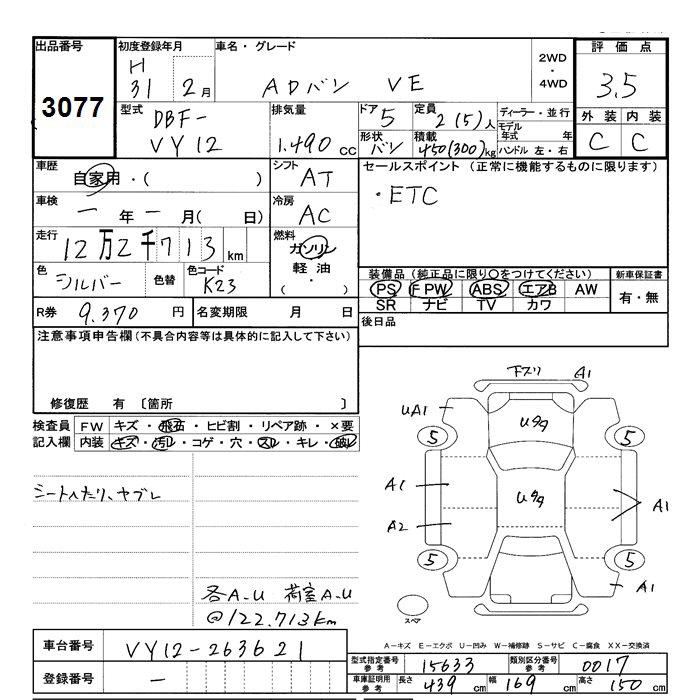 出品番号
3077
初度登録年月
H
31 2月
車名・グレード
ADバン VE
2WD
・
4WD
評価点
3.5
外装 内装
C C
型式
DBF-
VY12
排気量
1.490 CC
ドア 5
定員 2(5)人
形状 バン
積載 450(300)kg
ディーラー・並行
モデル年式 年
ハンドル 左・右
車歴
自家用・( )
シフト
AT
車検
一年一月( 日)
冷房
AC
走行
12万2千713km
燃料
ガソリン
軽油
( ・ )
色
シルバー
色替
色コード
K23
セールスポイント (正常に機能するものに限ります)
・ETC
装備品 (純正品に限り○をつけてください)
PS F PW ABS エアB AW
SR ナビ TV カワ
新車保証書
有・無
R券 9.370 円
名変期限 月 日
後日品
注意事項申告欄(不具合内容等は具体的に記入して下さい)
修復歴 有 〔箇所 〕
検査員
記入欄
FW キズ・飛石・ヒビ割・リペア跡・×要
内装 キズ・汚レ・コゲ・穴・スレ・キレ・破レ
シートヘたり、ヤブレ
各A.U 荷室A.U
@122.713Km
下スリ A1
UA1
Uタタ
5 5
A1
Uタタ
A1
A2
5 5
A1
スペア
A-キズ E-エクボ U-凹み W-補修跡 S-サビ C-腐食 XX-交換済
車台番号 VY12-263621
登録番号 -
型式指定番号 参考 15633
類別区分番号 参考 0017
車庫証明用 参考 長さ 439 cm 幅 169 cm 高さ 150 cm